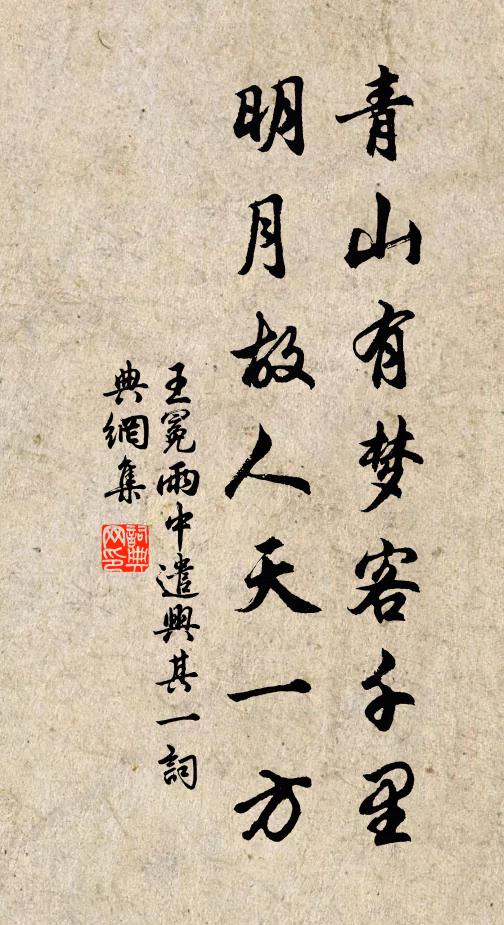 青山有梦客千里
明月故人天一方
王冕雨中遣興其一詞
典網集
詞典网印